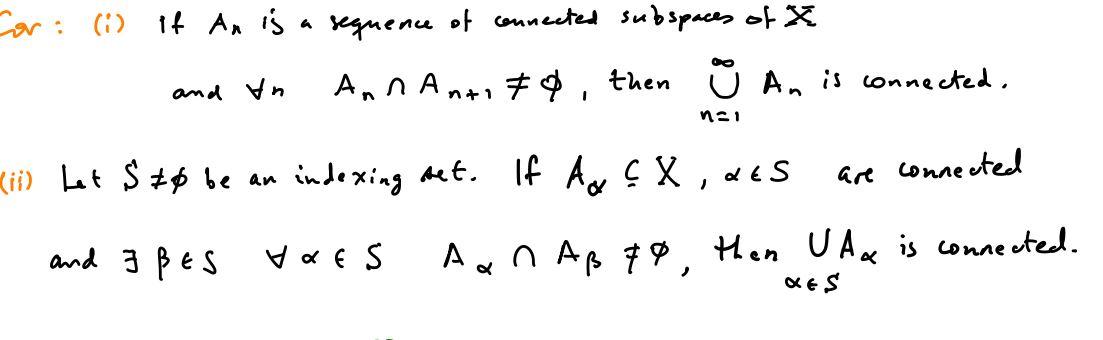 Cor : (i) If Aₙ is a sequence of connected subspaces of X
and ∀n Aₙ ∩ Aₙ₊₁ ≠ ∅, then ⋃_{n=1}^{∞} Aₙ is connected.
(ii) Let S ≠ ∅ be an indexing set. If A_α ⊆ X, α ∈ S are connected
and ∃ β ∈ S ∀ α ∈ S A_α ∩ A_β ≠ ∅, then ⋃_{α∈S} A_α is connected.